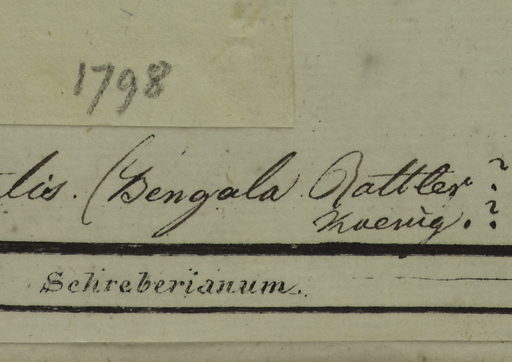 1798
lis. (Bengala Rottler?
Koenig.?
Schreberianum.